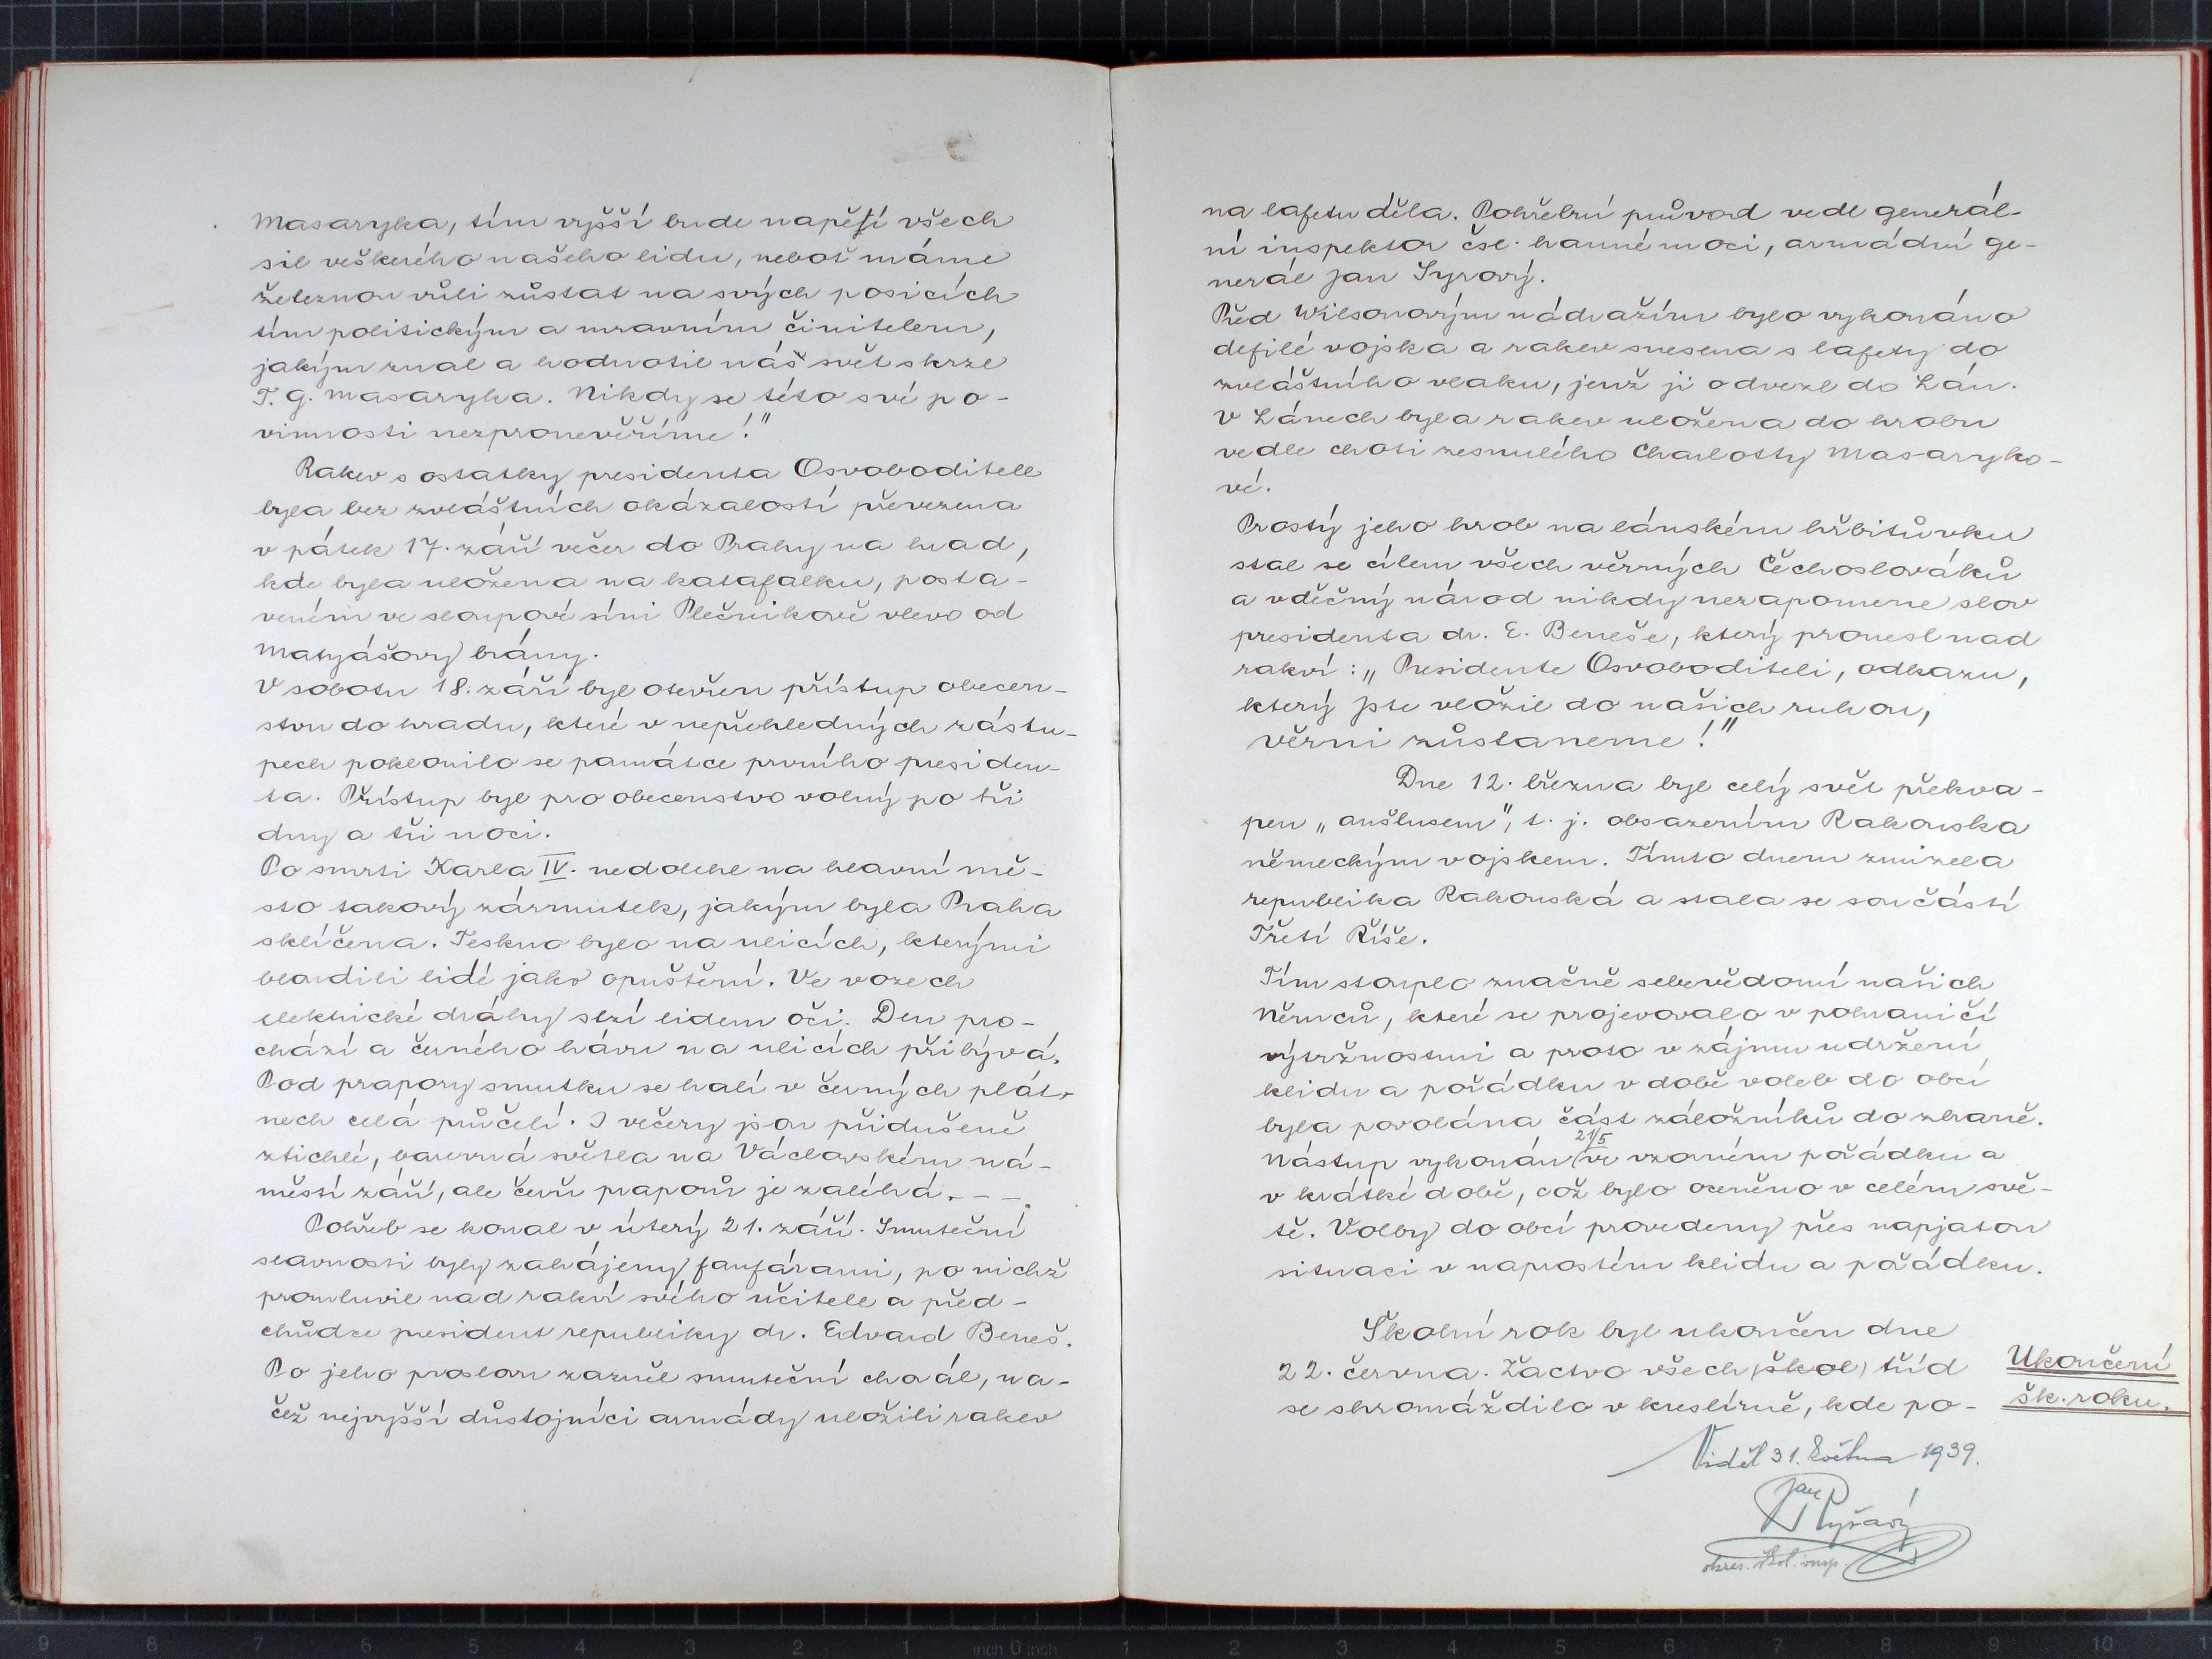 Masaryka, tím vyšší bude napětí všech
sil veškerého našeho lidu, neboť máme
železnou vůli zůstat na svých posicích
tím politickým a mravním činitelem,
jakým znal a hodnotil náš svět skrze
T. G. Masaryka. Nikdy se této své po-
vinnosti nezpronevěříme!"
Rakev s ostatky presidenta Osvoboditele
byla bez zvláštních okázalostí převezena
v pátek 17. září večer do Prahy na hrad,
kde byla uložena na katafalku, posta-
veném ve sloupové síni Plečnikově vlevo od
Matyášovy brány.
V sobotu 18. září byl otevřen přístup obecen-
stvu do hradu, které v nepřehledných zástu-
pech poklonilo se památce prvního presiden-
ta. Přístup byl pro obecenstvo volný po tři
dny a tři noci.
Po smrti Karla IV. nedolehl na hlavní mě-
sto takový zármutek, jakým byla Praha
sklíčena. Teskno bylo na ulicích, kterými
bloudili lidé jako opuštění. Ve vozech
elektrické dráhy slzí lidem oči. Den pro-
chází a černého hávu na ulicích přibývá.
Pod prapory smutku se halí v černých plát-
nech celá průčelí. I večery jsou přidušeně
ztichlé, barevná světla na Václavském ná-
městí září, ale čerň praporů je zaléhá. - - -
Pohřeb se konal v úterý 21. září. Smuteční
slavnosti byly zahájeny fanfárami, po nichž
promluvil nad rakví svého učitele a před-
chůdce president republiky dr. Edvard Beneš.
Po jeho proslovu zazněl smuteční chorál, na-
čež nejvyšší důstojníci armády uložili rakev
na lafetu děla. Pohřební průvod vedl generál-
ní inspektor čsl. branné moci, armádní ge-
nerál Jan Syrový.
Před Wilsonovým nádražím bylo vykonáno
defilé vojska a rakev snesena s lafety do
zvláštního vlaku, jenž ji odvezl do Lán.
V Lánech byla rakev uložena do hrobu
vedle choti zesnulého Charlotty Masaryko-
vé.
Prostý jeho hrob na lánském hřbitůvku
stal se cílem všech věrných Čechoslováků
a vděčný národ nikdy nezapomene slov
presidenta dr. E. Beneše, který pronesl nad
rakví: „Presidente Osvoboditeli, odkazu,
který jste vložil do našich rukou,
věrni zůstaneme!"
Dne 12. března byl celý svět překva-
pen „anšlusem", t. j. obsazením Rakouska
německým vojskem. Tímto dnem zmizela
republika Rakouská a stala se součástí
Třetí Říše.
Tím stouplo značně sebevědomí našich
Němců, které se projevovalo v pohraničí
výtržnostmi a proto v zájmu udržení
klidu a pořádku v době voleb do obcí
byla povolána část záložníků do zbraně.
21/5
Nástup vykonán (ve vzorném pořádku a
v krátké době, což bylo oceněno v celém svě-
tě. Volby do obcí provedeny přes napjatou
situaci v naprostém klidu a pořádku.
Školní rok byl ukončen dne
22. června. Žactvo všech (škol) tříd
se shromáždilo v kreslírně, kde po-
Ukončení
šk. roku.
Viděl 31. května 1939.
Jan
okres. škol. insp.